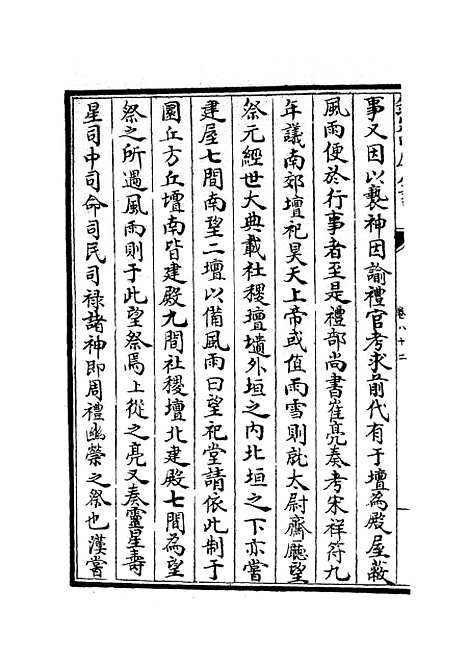 事又因以䙝神因諭禮官考求前代有于壇為殿屋蔽
風雨便於行事者至是禮部尚書崔亮奏考宋祥符九
年議南郊壇祀昊天上帝或值雨雪則就太尉齋廳望
祭元經世大典載社稷壇壝外垣之内北垣之下亦嘗
建屋七間南望二壇以備風雨曰望祀堂請依此制于
圜丘方丘壇南皆建殿九間社稷壇北建殿七間為望
祭之所遇風雨則于此望祭焉上從之亮又奏靈星壽
星司中司命司民司禄諸神即周禮幽禜之祭也漢嘗
卷八十二